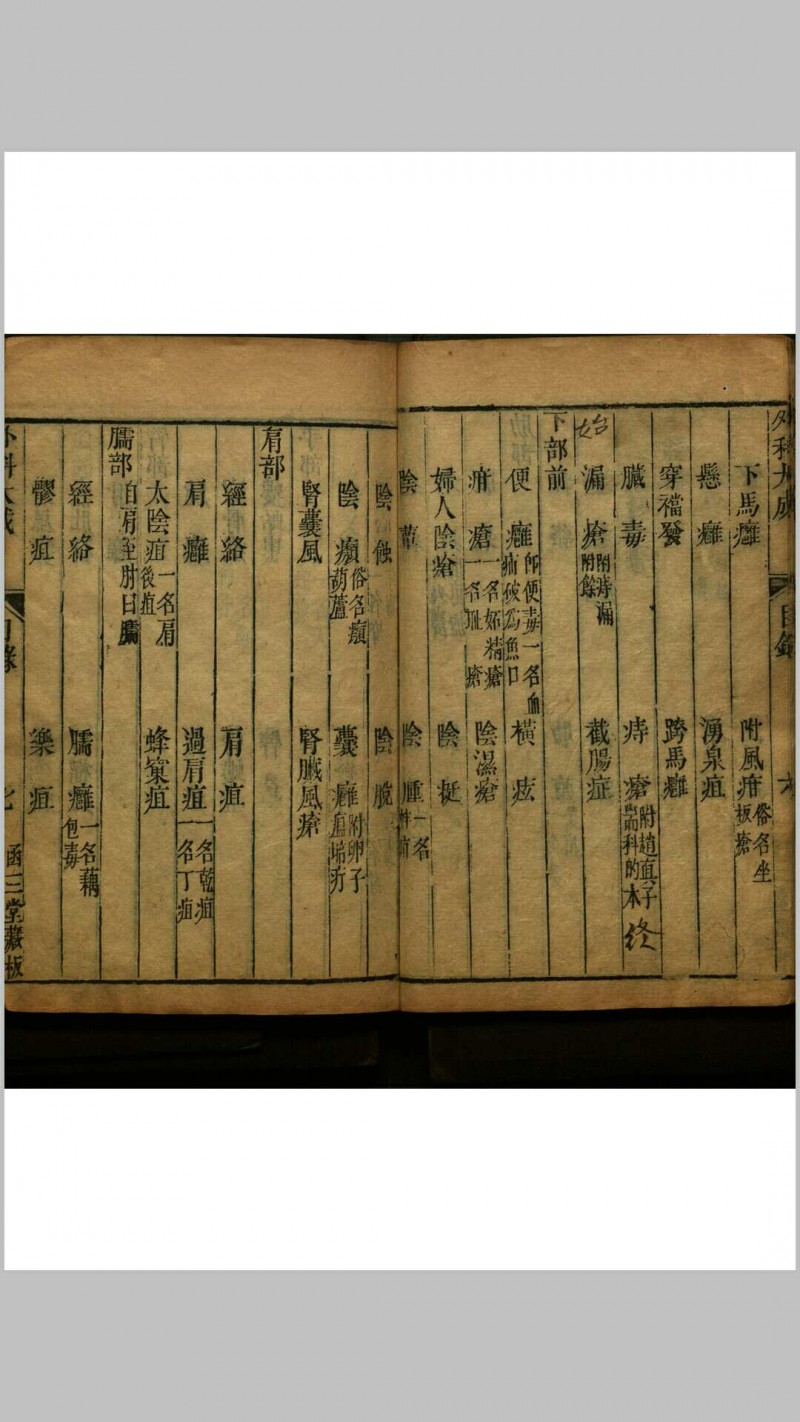 外科大成
目錄
下馬癰　附風疳俗名坐板瘡
懸癰　湧泉疽
穿襠發　跨馬癰
臟毒　痔瘡附趙直子耑科的本　终
始　漏瘡附痔漏附餘　截腸症
下部前
便癰即便毒一名血疝破為魚口　橫痃
疳瘡一名妬精瘡一名瘡　陰濕瘡
婦人陰瘡　陰挺
陰蕈　陰腫一名
陰蝕　陰脫
陰㿗俗名㿗葫蘆　囊癰附卵子瘟
腎囊風　腎臟風瘡
肩部
經絡　肩疽
肩癰　過肩疽一名乾疽一名丁疽
太陰疽一名肩後疽　蜂窠疽
臑部自肩至肘曰臑
經絡　臑癰一名藕包毒
髎疽　樂疽
外科大成
目錄
七
函三堂藏板